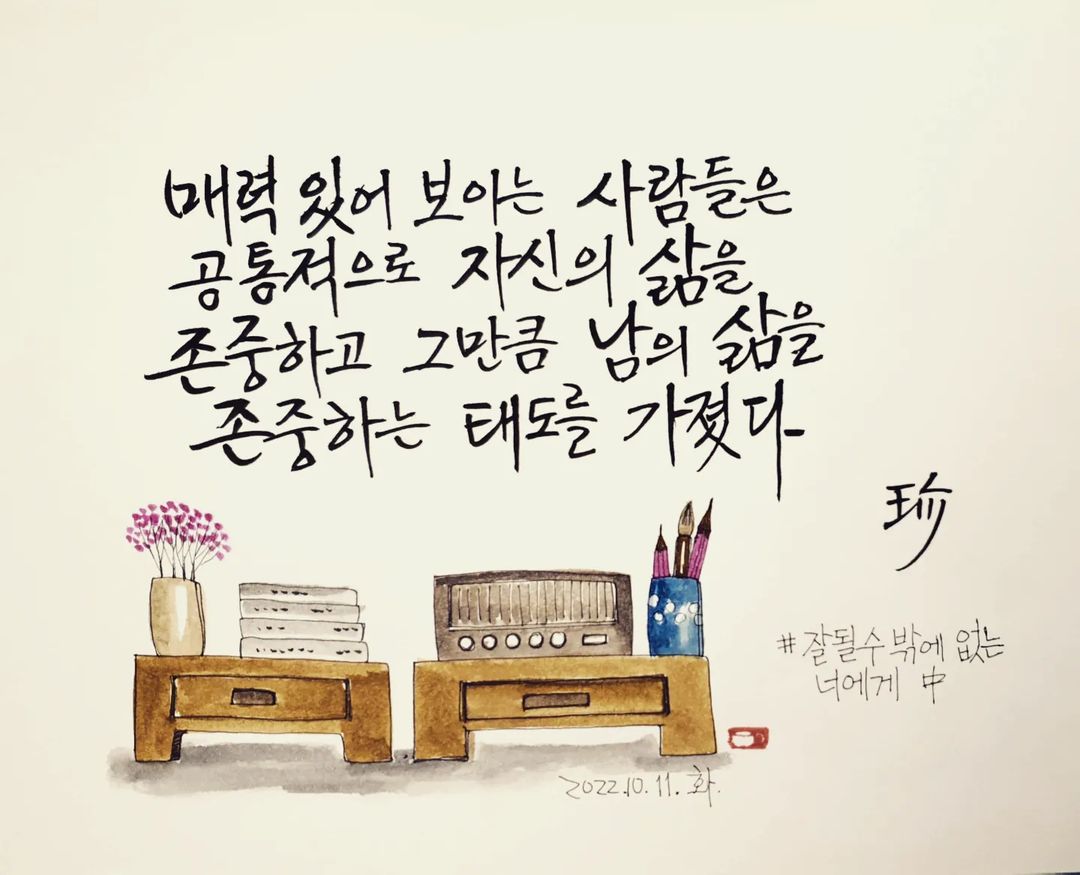 매력 있어 보이는 사람들은
공통적으로 자신의 삶을
존중하고 그만큼 남의 삶을
존중하는 태도를 가졌다.
珍
#잘될수밖에 없는
너에게 中
2022.10.11.화.